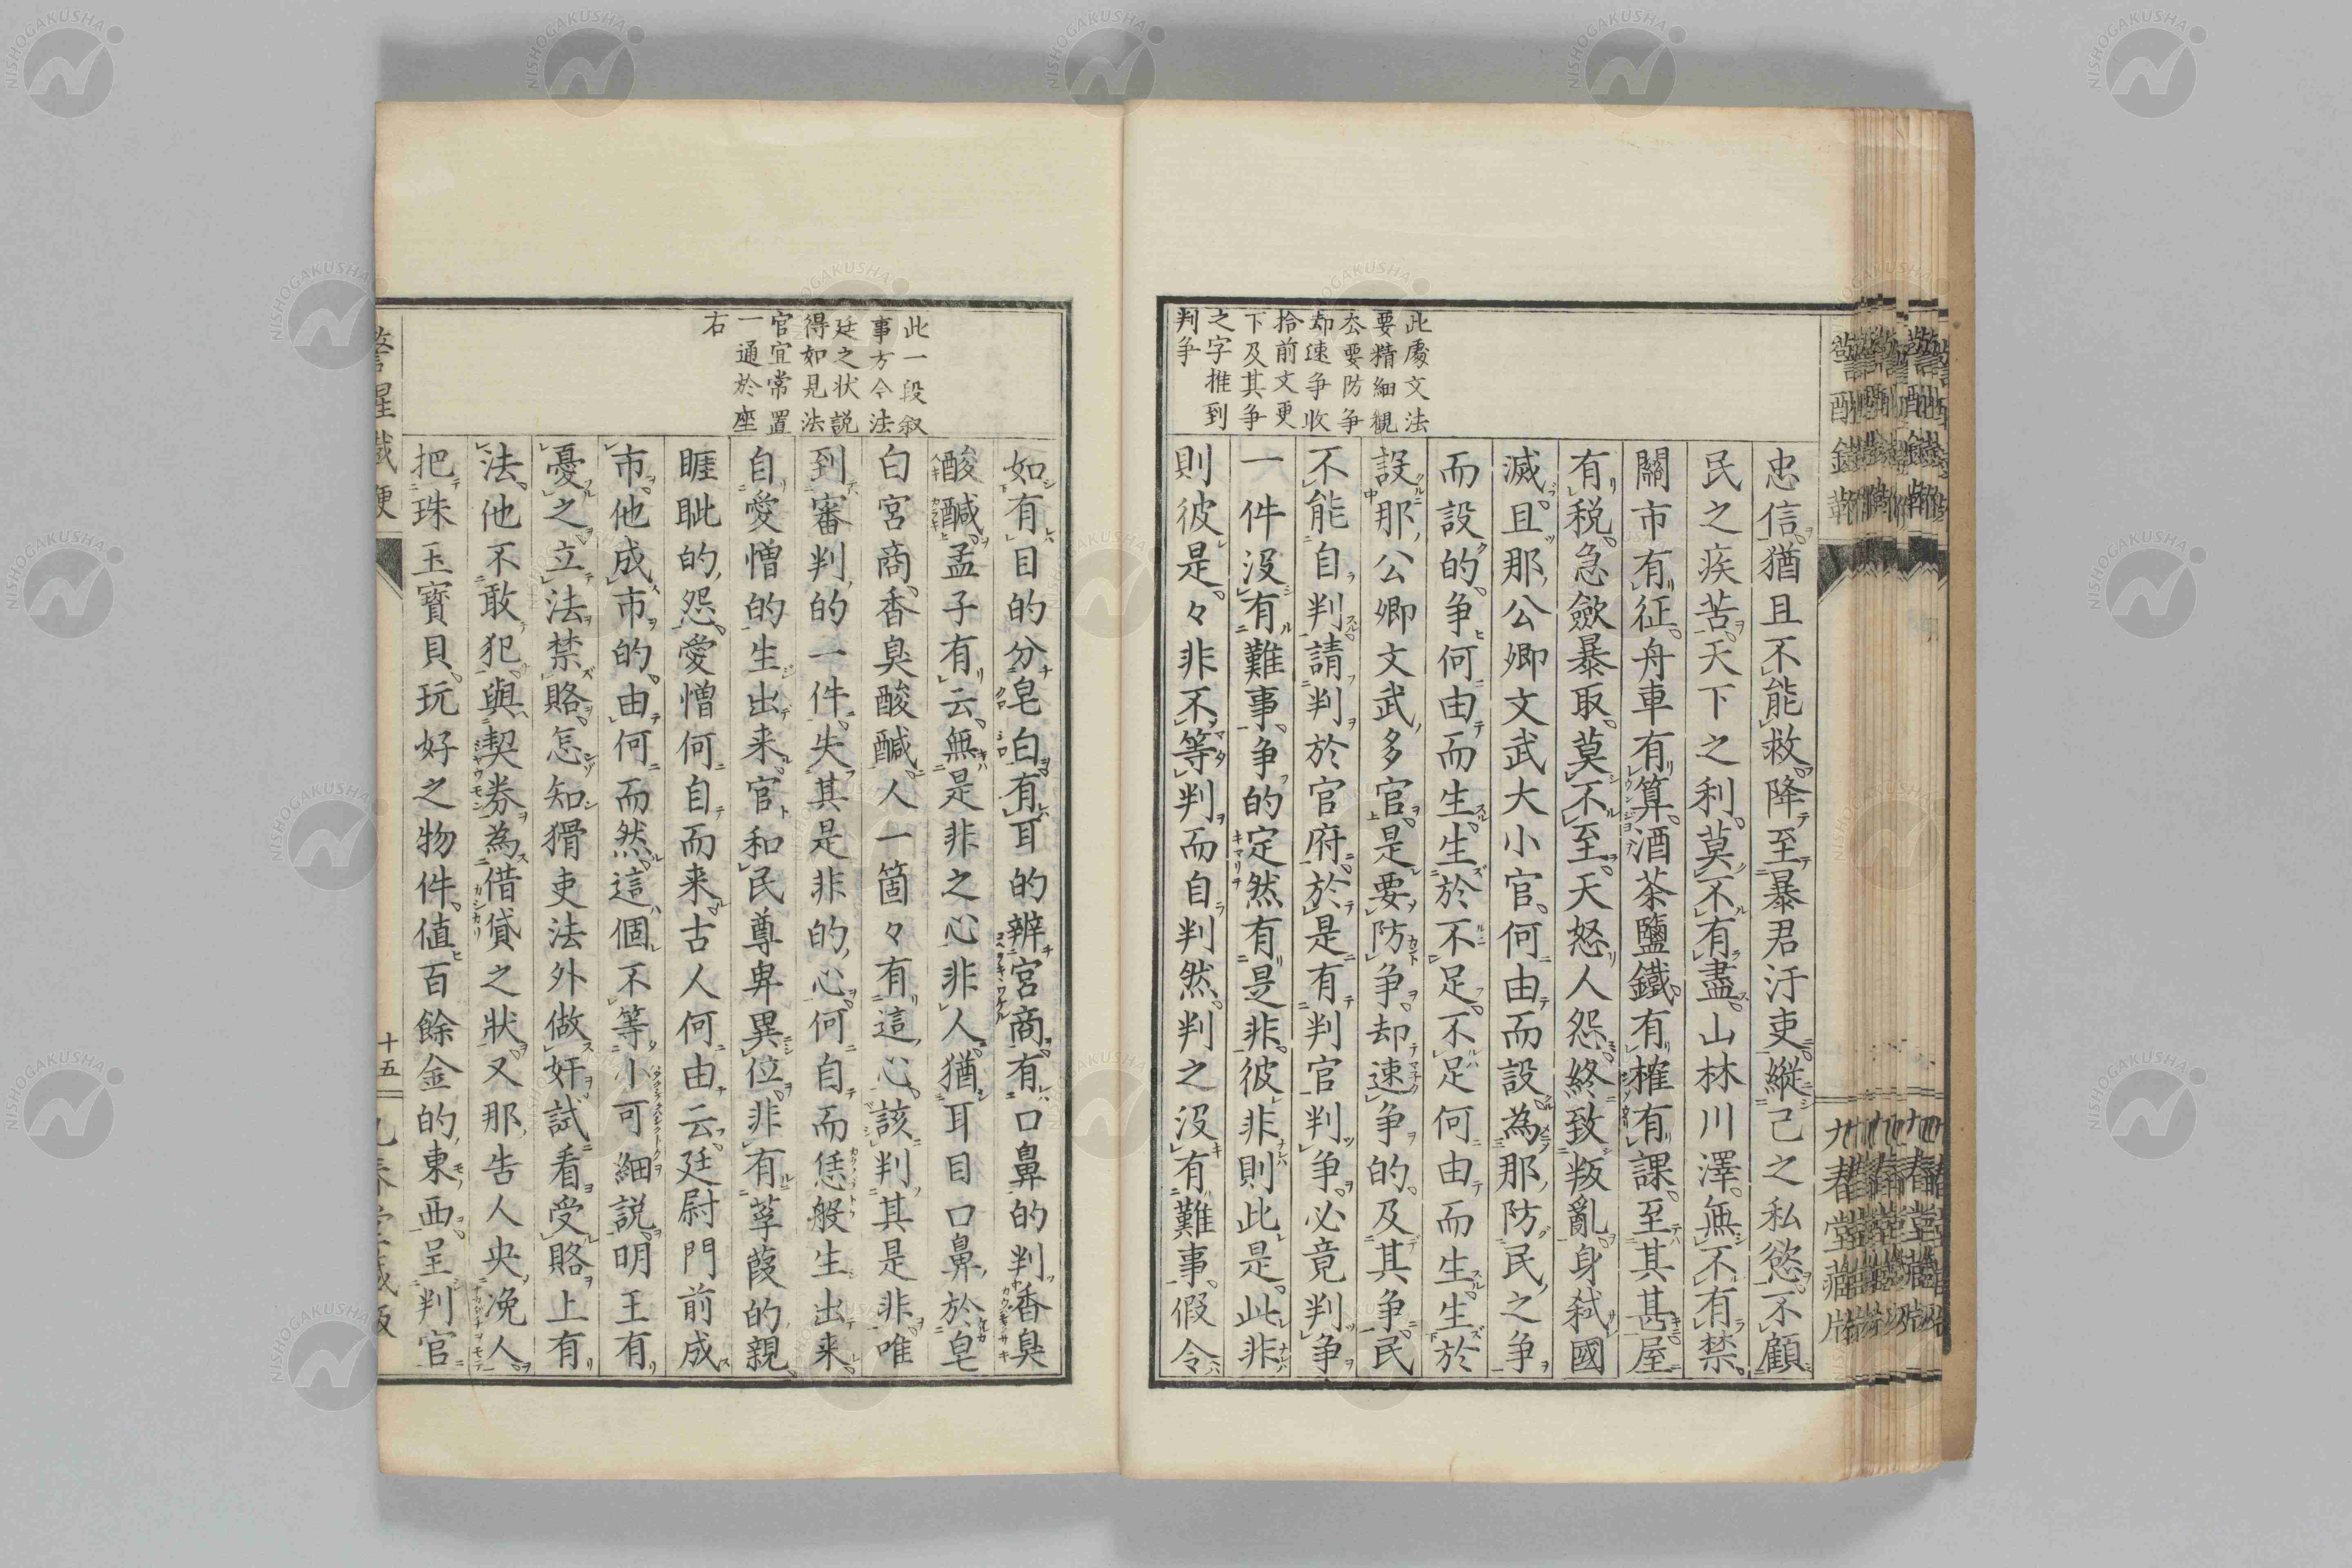 此處文法
要精細観
夲要防争
却速争收
拾前文更
下及其争
之字推到
判争
忠信猶且不能救降至暴君汙吏縦己之私慾不顧
民之疾苦天下之利莫不有盡山林川澤無不有禁
關市有征舟車有算酒茶鹽鐵有榷有課至其甚屋
有税急歛暴取莫不至天怒人怨終致叛亂身弑國
滅且那公卿文武大小官何由而設為那防民之争
而設的争何由而生生於不足不足何由而生生於
設那公卿文武多官是要防争却速争的及其争民
不能自判請判於官府於是有判官判争必竟判争
一件没有難事争的定然有是非彼非則此是此非
則彼是々非不等判而自判然判之没有難事假令
此一段叙
事方今法
廷之状説
得如見法
官宜常置
一通於座
右
如有目的分皂白有耳的辨宮商有口鼻的判香臭
酸醎孟子有云無是非之心非人猶耳目口鼻於皂
白宮商香臭酸醎人一箇々有這心該判其是非唯
到審判的一件失其是非的心何自而恁般生出来
自愛憎的生出来官和民尊卑異位非有莩葭的親
睚眦的怨愛憎何自而来古人何由云廷尉門前成
市他成市的由何而然這個不等小可細説明王有
憂之立法禁賂怎知猾吏法外做奸試看受賂上有
法他不敢犯與契券為借貸之狀又那告人央浼人
把珠玉寳貝玩好之物件値百餘金的東西呈判官
十五